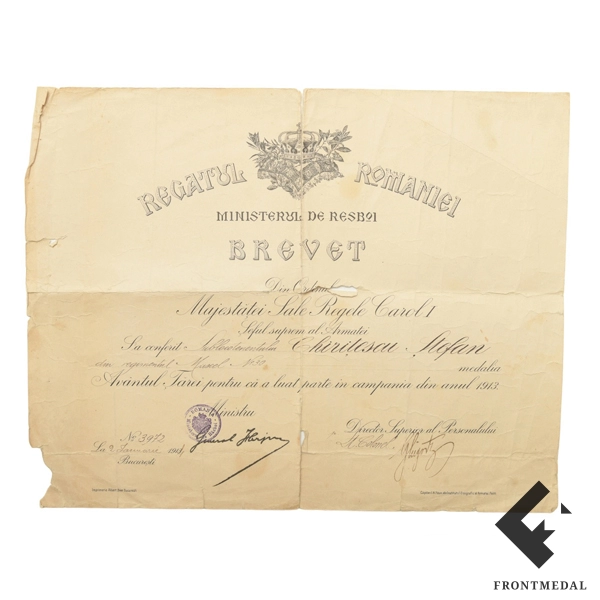 REGATUL ROMANIEI
MINISTERUL DE RESBOI
BREVET
Din Ordinul
Majestăței Sale Regele Carol I
Șeful suprem al Armatei
S'a conferit Sublocotenentului Chirițescu Ștefan
din regimentul Muscel No 30 medalia
Avântul Țărei pentru că a luat parte în campania din anul 1913
Ministru
Director Superior al Personalului
ROMANIA
No 3972
La 2 Ianuarie 1914
București
FRONTMEDAL